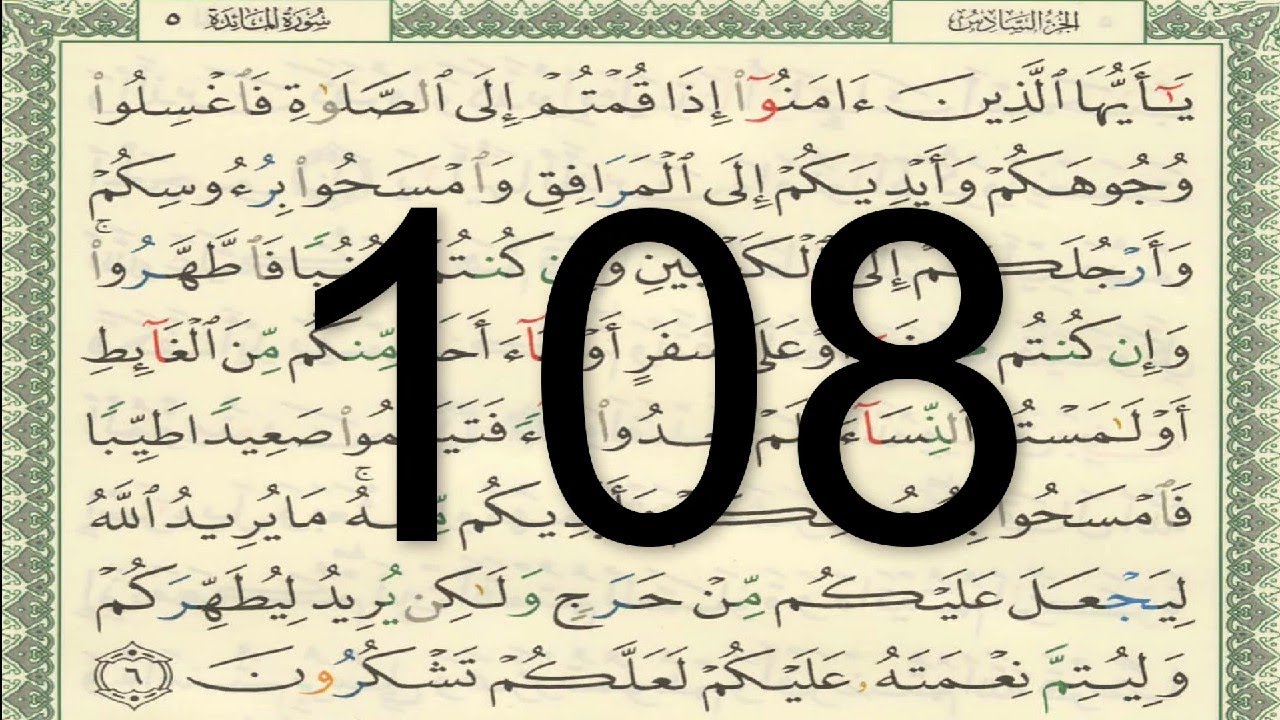 الجزء السادس
سورة المائدة ٥
يَٰٓأَيُّهَا ٱلَّذِينَ ءَامَنُوٓا۟ إِذَا قُمْتُمْ إِلَى ٱلصَّلَوٰةِ فَٱغْسِلُوا۟
وُجُوهَكُمْ وَأَيْدِيَكُمْ إِلَى ٱلْمَرَافِقِ وَٱمْسَحُوا۟ بِرُءُوسِكُمْ
وَأَرْجُلَكُمْ إِلَى ٱلْكَعْبَيْنِ وَإِن كُنتُمْ جُنُبًا فَٱطَّهَّرُوا۟ ۚ
وَإِن كُنتُم مَّرْضَىٰٓ أَوْ عَلَىٰ سَفَرٍ أَوْ جَآءَ أَحَدٌ مِّنكُم مِّنَ ٱلْغَآئِطِ
أَوْ لَٰمَسْتُمُ ٱلنِّسَآءَ فَلَمْ تَجِدُوا۟ مَآءً فَتَيَمَّمُوا۟ صَعِيدًا طَيِّبًا
فَٱمْسَحُوا۟ بِوُجُوهِكُمْ وَأَيْدِيكُم مِّنْهُ ۚ مَا يُرِيدُ ٱللَّهُ
لِيَجْعَلَ عَلَيْكُم مِّنْ حَرَجٍ وَلَٰكِن يُرِيدُ لِيُطَهِّرَكُمْ
وَلِيُتِمَّ نِعْمَتَهُۥ عَلَيْكُمْ لَعَلَّكُمْ تَشْكُرُونَ ٦
108